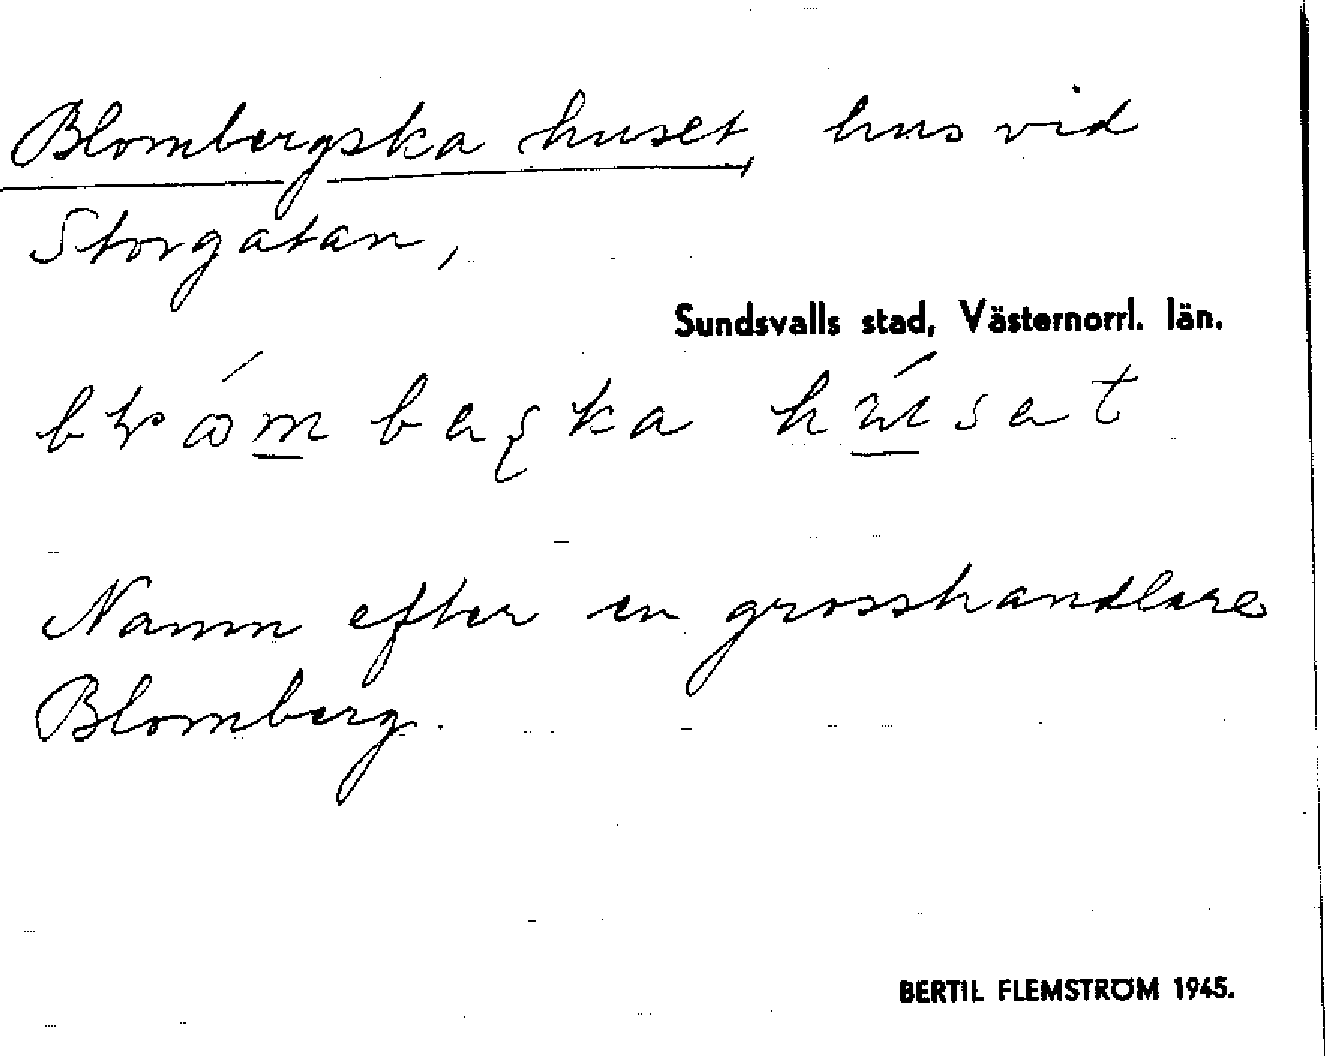 Blombergska huset, hus vid
Storgatan,
Sundsvalls stad, Västernorrl. län.
Namn efter en grosshandlare
Blomberg.
BERTIL FLEMSTRÖM 1945.